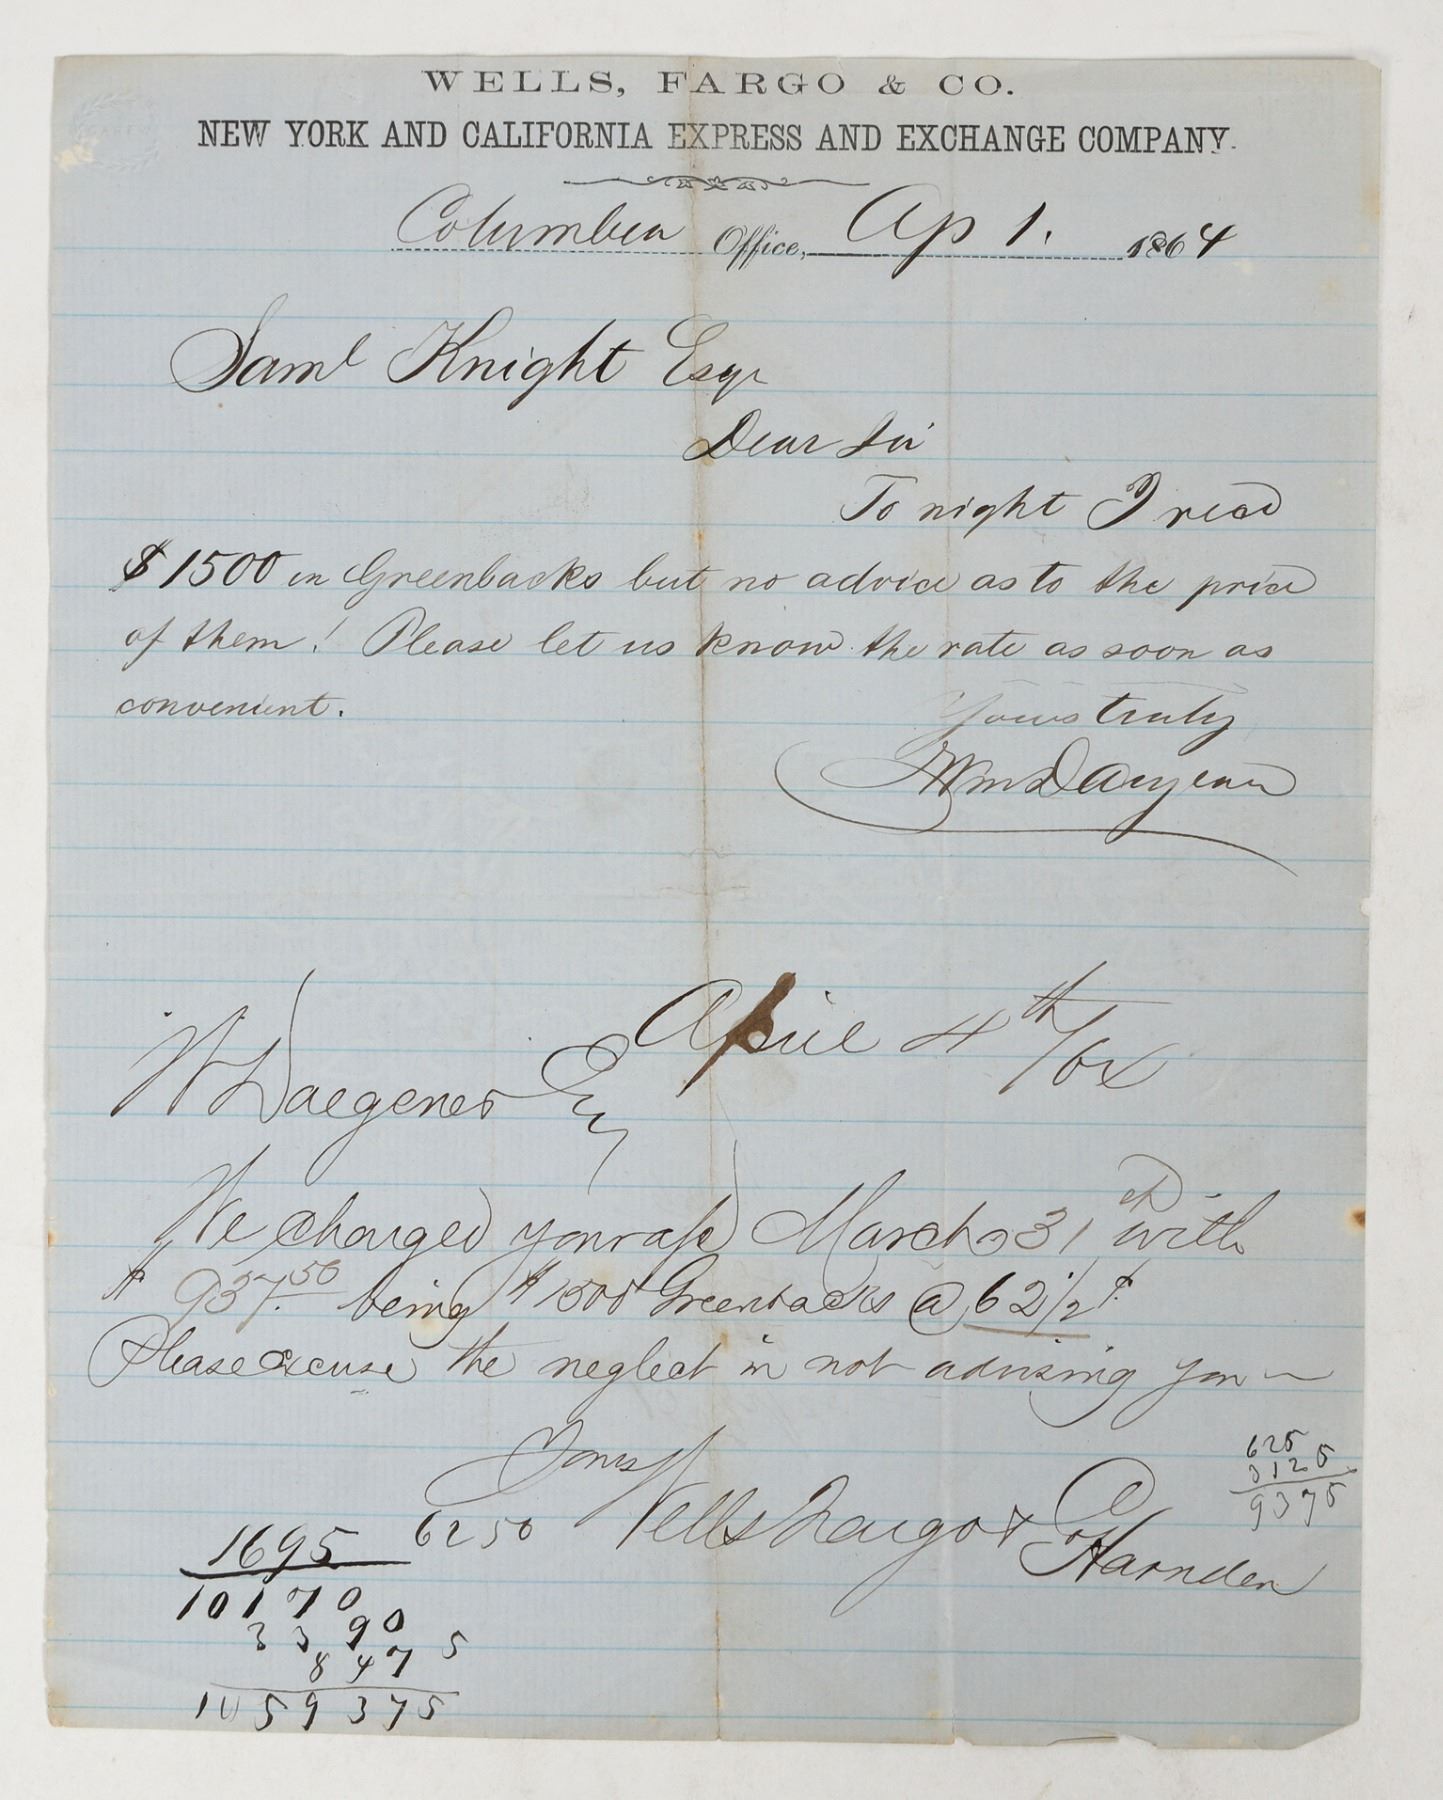 WELLS, FARGO & CO.
NEW YORK AND CALIFORNIA EXPRESS AND EXCHANGE COMPANY.
Columbia Office, Ap 1. 1864
Saml Knight Esqr
Dear Sir
To night I recd
$1500 in Greenbacks but no advice as to the price
of them! Please let us know the rate as soon as
convenient.
Yours truly
Wm Daegener
April 4th /64
W Daegener Esq
We charged your March 31 with
$ 937.50 being $1500 Greenbacks @ 62 1/2 ¢
Please excuse the neglect in not advising you —
Yours
Wells Fargo & Co
Harnden
625
3125
9375
6250
1695
10170
3390
8475
1059375